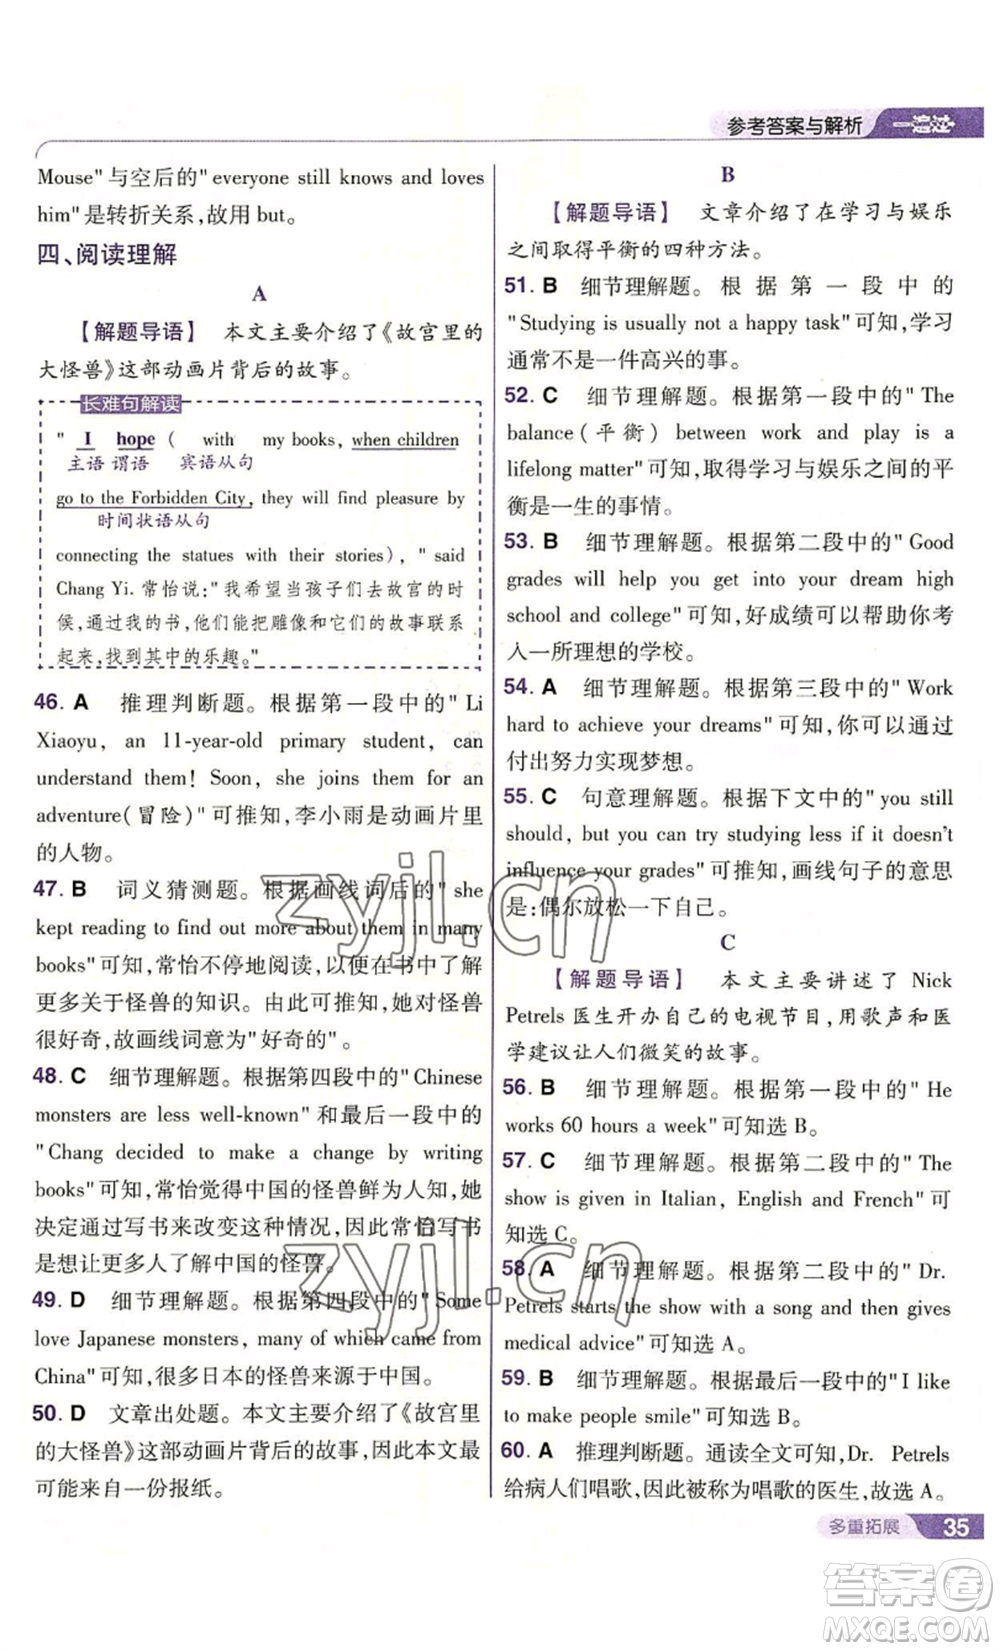 参考答案与解析 一遍过
Mouse"与空后的" everyone still knows and loves
him"是转折关系,故用 but。
四、阅读理解
A
【解题导语】 本文主要介绍了《故宫里的
大怪兽》这部动画片背后的故事。
长难句解读
" I hope ( with my books, when children
主语 谓语 宾语从句
go to the Forbidden City, they will find pleasure by
时间状语从句
connecting the statues with their stories), " said
Chang Yi. 常怡说:"我希望当孩子们去故宫的时
候,通过我的书,他们能把雕像和它们的故事联系
起来,找到其中的乐趣。"
46. A 推理判断题。根据第一段中的" Li
Xiaoyu, an 11-year-old primary student, can
understand them! Soon, she joins them for an
adventure(冒险)"可推知,李小雨是动画片里
的人物。
47. B 词义猜测题。根据画线词后的" she
kept reading to find out more about them in many
books"可知,常怡不停地阅读,以便在书中了解
更多关于怪兽的知识。由此可推知,她对怪兽
很好奇,故画线词意为"好奇的"。
48. C 细节理解题。根据第四段中的"Chinese
monsters are less well-known"和最后一段中的
"Chang decided to make a change by writing
books"可知,常怡觉得中国的怪兽鲜为人知,她
决定通过写书来改变这种情况,因此常怡写书
是想让更多人了解中国的怪兽。
49. D 细节理解题。根据第四段中的"Some
love Japanese monsters, many of which came from
China"可知,很多日本的怪兽来源于中国。
50. D 文章出处题。本文主要介绍了《故宫里
的大怪兽》这部动画片背后的故事,因此本文最
可能来自一份报纸。
B
【解题导语】 文章介绍了在学习与娱乐
之间取得平衡的四种方法。
51. B 细节理解题。根据第一段中的
"Studying is usually not a happy task"可知,学习
通常不是一件高兴的事。
52. C 细节理解题。根据第一段中的" The
balance(平衡) between work and play is a
lifelong matter"可知,取得学习与娱乐之间的平
衡是一生的事情。
53. B 细节理解题。根据第二段中的" Good
grades will help you get into your dream high
school and college"可知,好成绩可以帮助你考
入一所理想的学校。
54. A 细节理解题。根据第三段中的"Work
hard to achieve your dreams"可知,你可以通过
付出努力实现梦想。
55. C 句意理解题。根据下文中的"you still
should, but you can try studying less if it doesn't
influence your grades"可推知,画线句子的意思
是:偶尔放松一下自己。
C
【解题导语】 本文主要讲述了 Nick
Petrels 医生开办自己的电视节目,用歌声和医
学建议让人们微笑的故事。
56. B 细节理解题。根据第一段中的" He
works 60 hours a week"可知选 B。
57. C 细节理解题。根据第二段中的" The
show is given in Italian, English and French"可
知选 C。
58. A 细节理解题。根据第二段中的" Dr.
Petrels starts the show with a song and then gives
medical advice"可知选 A。
59. B 细节理解题。根据最后一段中的"I like
to make people smile"可知选 B。
60. A 推理判断题。通读全文可知,Dr. Petrels
给病人们唱歌,因此被称为唱歌的医生,故选 A。
多重拓展 35
zyjl.cn
zyjl.cn
答案圈
MXQE.COM